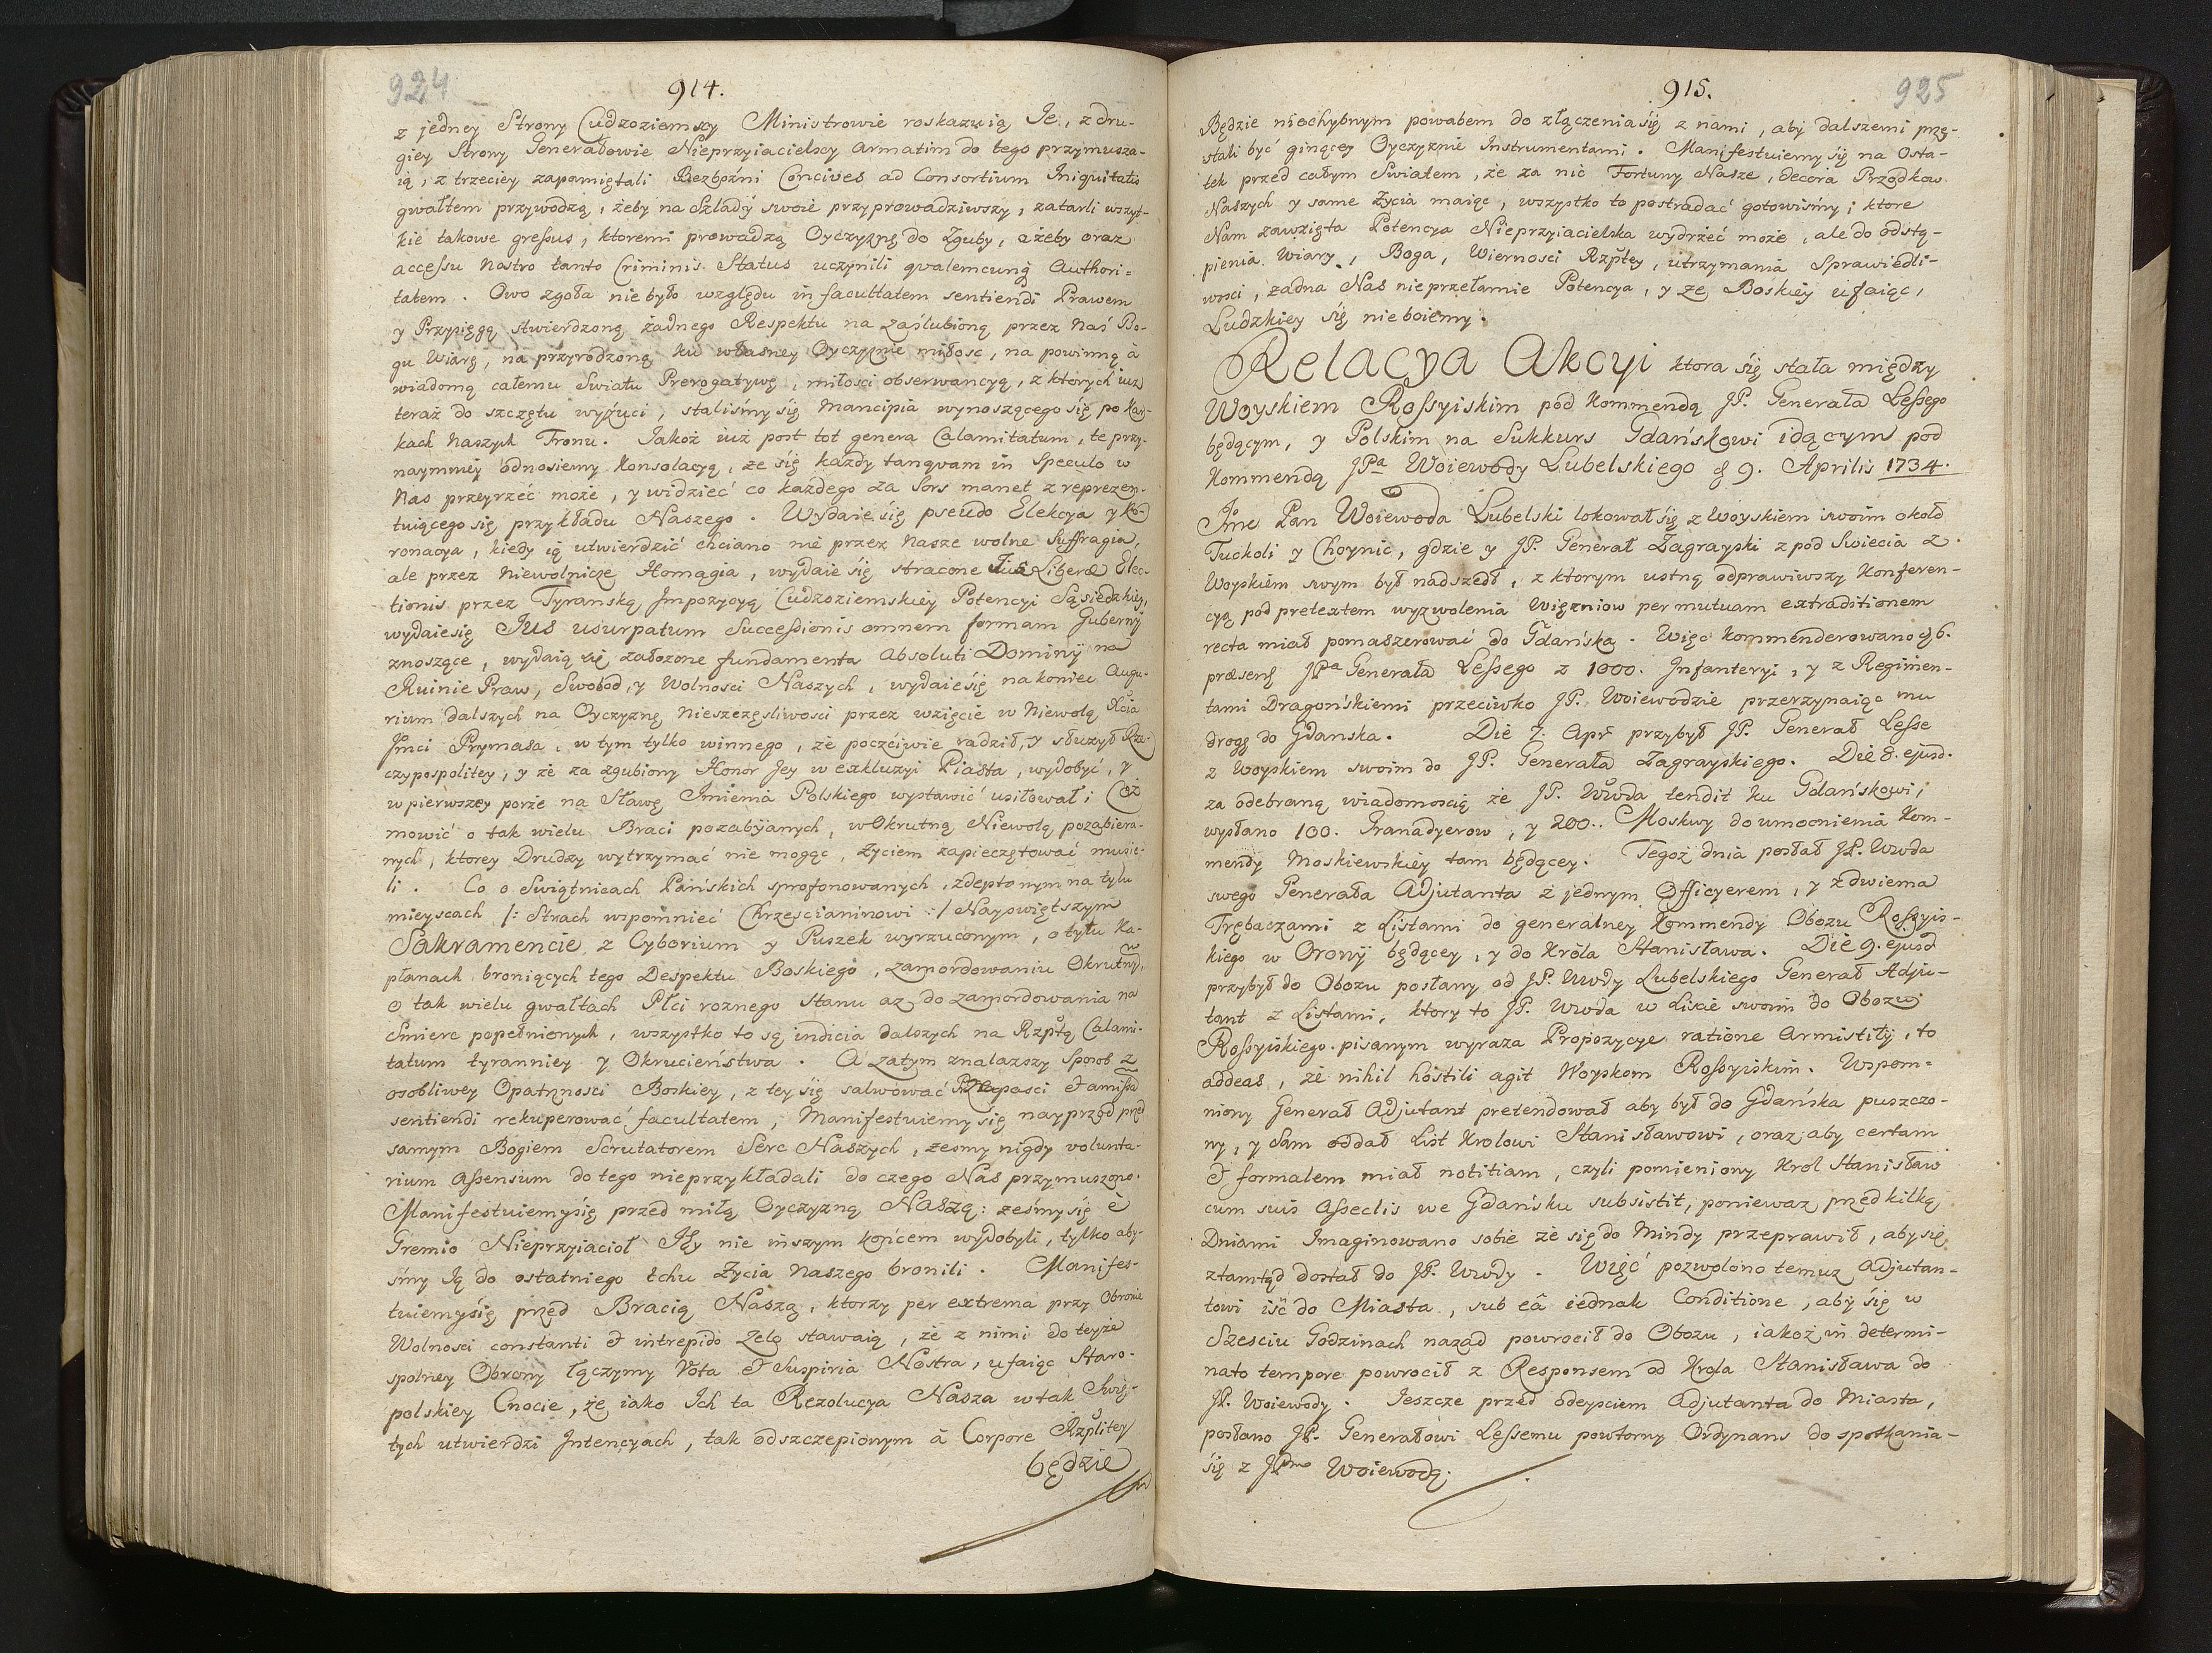 924
914.
z jedney Strony Cudzoziemscy Ministrowie roskazuią Je, z dru-
giey Strony Generałowie Nieprzyiacielscy armatim do tego przymusza-
ią, z trzeciey zapamiętali Bezbożni Concives ad Consortium Iniquitatis
gwałtem przywodzą, żeby na Szlady swoie przyprowadziwszy, zatarli wszyt-
kie takowe gressus, ktoremi prowadzą Oyczyznę do Zguby, a żeby oraz
accessu nostro tanto Criminis Status uczynili qvalemcunq Authori-
tatem. Owo zgoła nie było względu in facultatem sentiendi Prawem
y Przysięgą stwierdzoną żadnego Respektu na zaślubioną przez Nas Bo-
gu Wiarę, na przyrodzoną ku własney Oyczyznie miłosc, na powinną à
wiadomą całemu Swiatu Prerogatywę, miłosci obserwancyą, z ktorych iuż
teraz do szczętu wyzuci, stalismy się Mancipia wynoszącego się po Kar-
kach Naszych Tronu. Jakoż iuż post tot genera Calamitatum, te przy-
naymniey odnosiemy Konsolacyą, ze się kazdy tanqvam in Speculo w
Nas przeyrzeć może, y widzieć co każdego za Sors manet z reprezen-
tuiącego się przykładu Naszego. Wydaie się pseudo Elekcya y Ko-
ronacya, kiedy ią utwierdzić chciano nie przez Nasze wolne Suffragia,
ale przez Niewolnicze Homagia, wydaie się stracone Jus Liberæ Elec-
tionis przez Tyranską Impozycyą Cudzoziemskiey Potencyi Sąsiedzkiey,
wydaiesię Jus usurpatum Successionis omnem formam Gubernij
znoszące, wydaią się założone fundamenta Absoluti Dominij na
Ruinie Praw, Swobod, y Wolnosci Naszych, wydaiesię nakoniec Augu-
rium dalszych na Oyczyznę nieszczęsliwosci przez wzięcie w Niewolą Xcia
Jmci Prymasa, w tym tylko winnego, że poczciwie radził, y słuzył Rze-
czypospolitey, y że za zgubiony Honor Jey w exkluzyi Piasta, wydobyć, y
w pierwszey porze na Sławę Imienia Polskiego wystawić usiłował; Coż
mowić o tak wielu Braci pozabijanych, w Okrutną Niewolą pozabiera-
nych, ktorey Drudzy wytrzymać nie mogąc, życiem zapieczętować musie-
li. Co o Swiątnicach Pańskich sprofonowanych, zdeptonym na tylu
mieyscach /: Strach wspomnieć Chrzescianinowi :/ Nayswiętszym
Sakramencie z Cyborium y Puszek wyrzuconym, o tylu Ka-
płanach broniących tego Despektu Boskiego, zamordowaniu Okrutnym,
o tak wielu gwałtach Płci roznego Stanu aż do zamordowania na
Smierc popełnionych, wszystko to są indicia dalszych na Rzptą Calami-
tatum tyranniey y Okrucieństwa. A zatym znalazszy sposob z
osobliwey Opatrznosci Boskiey, z tey się salwować Przepasci & amissa
sentiendi rekuperować facultatem, Manifestuiemy się nayprzod przed
samym Bogiem Scrutatorem Serc Naszych, żesmy nigdy volunta-
rium Assensum do tego nieprzykładali do czego Nas przymuszono.
Manifestuiemysię przed miłą Oyczyzną Naszą: żeśmy się è
Gremio Nieprzyiacioł Jey nie inszym końcem wydobyli, tylko aby-
śmy Ją do ostatniego tchu Zycia Naszego bronili. Manifes-
tuiemysię przed Bracią Naszą, ktorzy per extrema przy Obronie
Wolnosci constanti & intrepido Zelo stawaią, że z nimi do teyże
spolney Obrony łączymy Vota & Suspiria Nostra, ufaiąc Staro-
polskiey Cnocie, że iako Ich ta Rezolucya Nasza w tak Swię-
tych utwierdzi Intencyach, tak odszczepionym à Corpore Rzplitey
będzie
925
915.
Będzie niechybnym powabem do złączenia się z nami, aby dalszemi prze-
stali być ginącey Oyczyznie Instrumentami. Manifestuiemy się na Osta-
tek przed całym Swiatem, że za nic Fortuny Nasze, decora Przodkow
Naszych y same Zycia maiąc, wszystko to postradać gotowismy; ktore
Nam zawzięta Potencya Nieprzyiacielska wydrzeć może, ale do odstą-
pienia Wiary, Boga, Wiernosci Rzptey, utrzymania Sprawiedli-
wosci, żadna Nas nieprzełamie Potencya, y ze Boskiey ufaiąc,
Ludzkiey się nieboiemy.
Relacya Akcyi ktora się stała między
Woyskiem Rossyiskim pod Kommendą JP. Generała Lessego
będącym, y Polskim na Sukkurs Gdańskowi idącym pod
Kommendą JPa Woiewody Lubelskiego d 9. Aprilis 1734.
Jmc Pan Woiewoda Lubelski lokował się z Woyskiem swoim około
Tucholi y Choynic, gdzie y JP. Generał Zagrayski z pod Swiecia z
Woyskiem swym był nadszedł, z ktorym ustną odprawiwszy Konferen-
cyą pod pretextem wyzwolenia Więzniow per mutuam extraditionem
recta miał pomaszerować do Gdańska. Więc kommenderowano d 6.
præsens JPa Generała Lessego z 1000. Infanteryi, y z Regimen-
tami Dragońskiemi przeciwko JP. Woiewodzie przerzynaiąc mu
drogę do Gdanska. Die 7. Apr przybył JP. Generał Lesse
z Woyskiem swoim do JP. Generała Zagrayskiego. Die 8. ejusd.
za odebraną wiadomoscią że JP. Wwda tendit ku Gdańskowi,
wysłano 100. Granadyerow, y 200. Moskwy do umocnienia Kom-
mendy Moskiewskiey tam będącey. Tegoż dnia posłał JP. Wwda
swego Generała Adjutanta z jednym Officyerem, y z dwiema
Trębaczami z Listami do generalney Kommendy Obozu Rossyis-
kiego w Oronij będącey, y do Króla Stanisława. Die 9. ejusd
przybył do Obozu posłany od JP. Wwdy Lubelskiego Generał Adju-
tant z Listami, ktory to JP. Wwda w Liscie swoim do Obozu
Rossyiskiego pisanym wyraza Propozycye ratione Armistitij, to
addeas, że nihil hostili agit Woyskom Rossyiskim. Wspom-
niony Generał Adjutant pretendował aby był do Gdańska puszczo-
ny, y Sam oddał List Krolowi Stanisławowi, oraz aby certam
& formalem miał notitiam, czyli pomieniony Król Stanisław
cum suis Asseclis we Gdańsku subsistit, poniewaz przed kilką
Dniami Imaginowano sobie że się do Mindy przeprawił, aby się
ztamtąd dostał do JP. Wwdy. Więć pozwolono temuz Adjutan-
towi iśc do Miasta, sub eâ iednak Conditione, aby się w
Szesciu Godzinach nazad powrocił do Obozu, iakoż in determi-
nato tempore powrocił z Responsem od Krola Stanisława do
JP. Woiewody. Jeszcze przed odeysciem Adjutanta do Miasta,
posłano JP. Generałowi Lessemu powtorny Ordynans do spotkania-
się z JPmo Woiewodą.